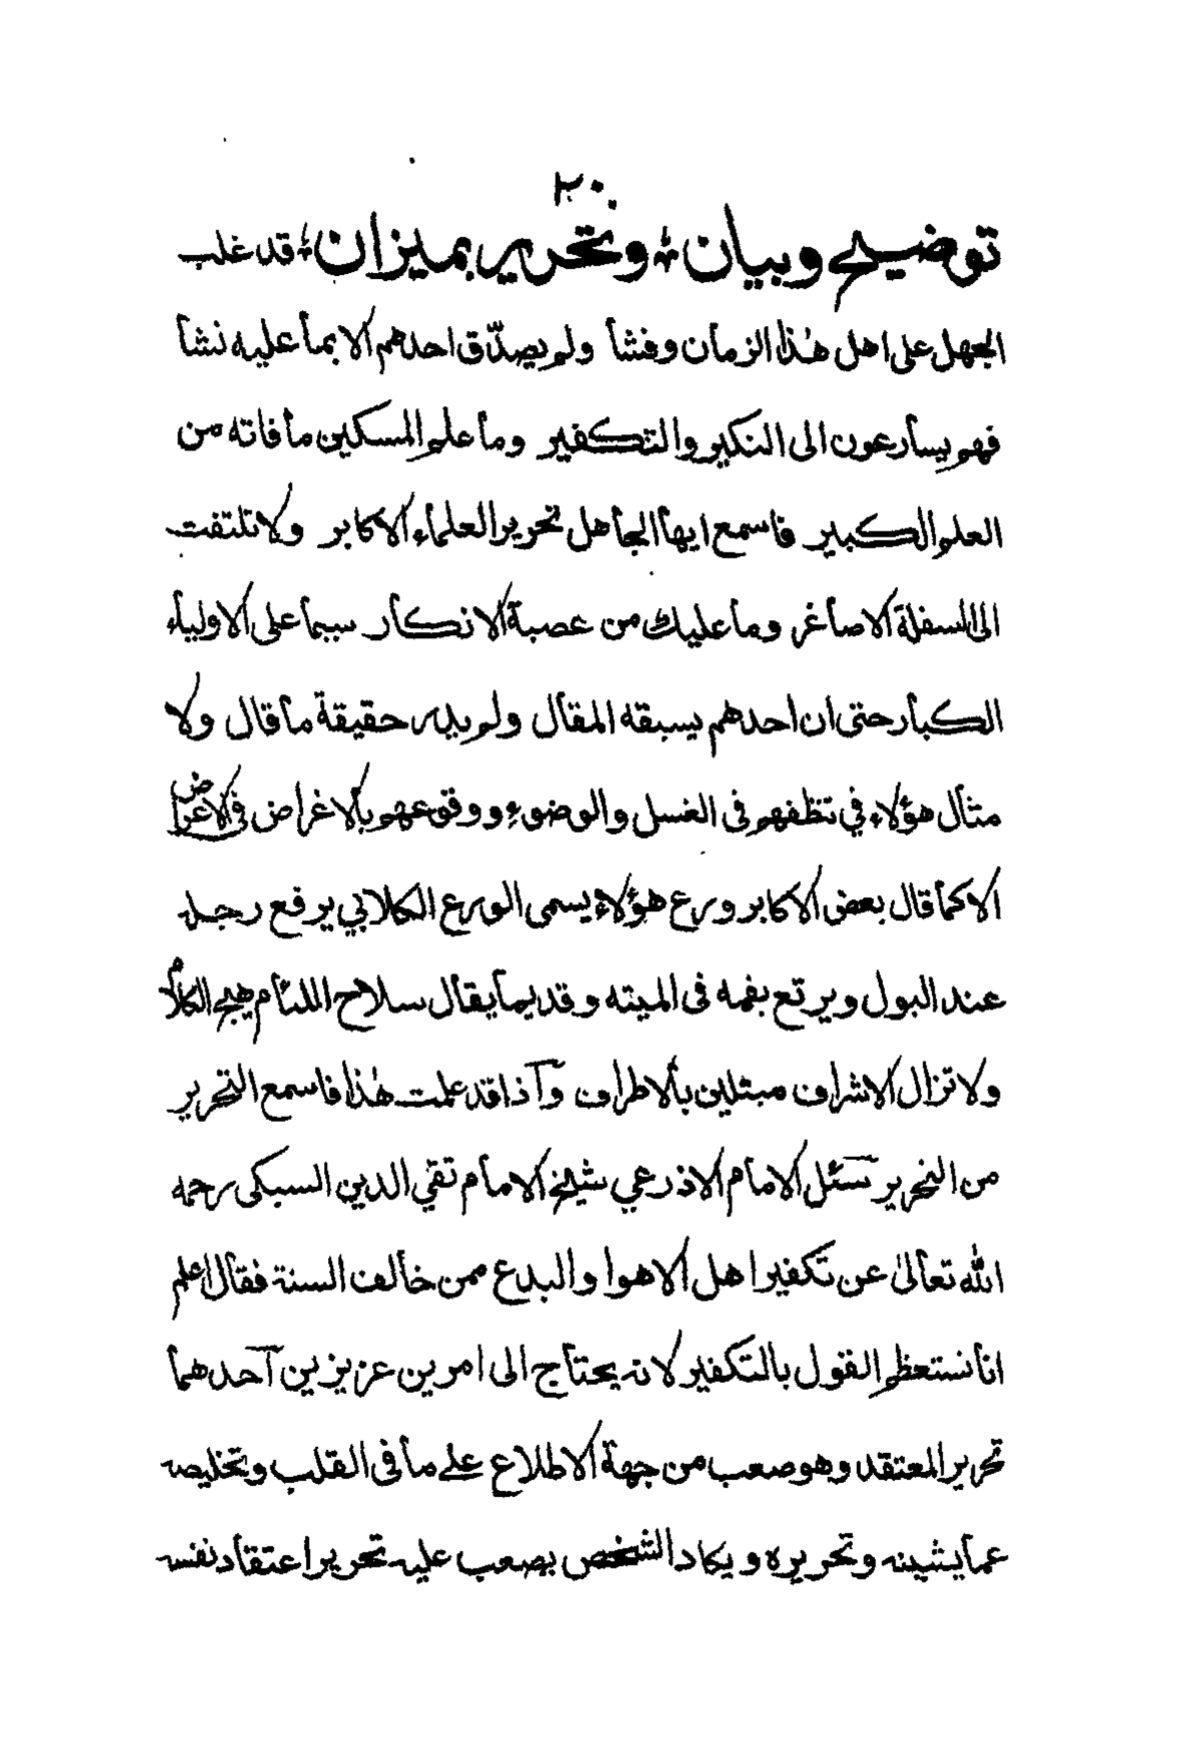 ٢٠
توضيح وبيان ؛ وتحرير بميزان ؛ قد غلب
الجهل على اهل هٰذا الزمان وفشأ ولم يصدّق احدهم الا بمأ عليه نشأ
فهم يسأرعون الى النكير والتكفير ومأ علم المسكين مأ فاته من
العلم الكبير فاسمع ايهأ الجأهل تحرير العلمأء الاكابر ولا تلتفت
الى السفلة الاصأغر ومأ عليك من عصبة الانكأر سيمأ على الاوليأء
الكبأر حتى ان احدهم يسبقه المقأل ولم يدر حقيقة مأ قال ولا
مثأل هؤلاء في تظفهم فى الغسل والوضوء ووقوعهم بألاغراض فى الاعراض
الا كمأ قال بعض الاكابر ورع هؤلاء يسمى الورع الكلابي يرفع رجله
عند البول ويرتع بفمه فى الميته وقديمأ يقأل سلاح اللئأم هيج الكلأم
ولا تزال الاشراف مبتلين بألاطراف وآذا قد علمت هٰذا فاسمع التحرير
من النحرير سئل الامام الاذرعي شيخ الامأم تقي الدين السبكى رحمه
الله تعألىٰ عن تكفير اهل الاهوا والبدع ممن خألف السنة فقأل اعلم
انأ نستعظم القول بالتكفير لانه يحتأج الى امرين عزيزين آحدهمأ
تحرير المعتقد وهو صعب من جهة الاطلاع علے مأ فى القلب وتخليصه
عمأ يشينه وتحريره ويكاد الشخص يصعب عليه تحرير اعتقأد نفسه